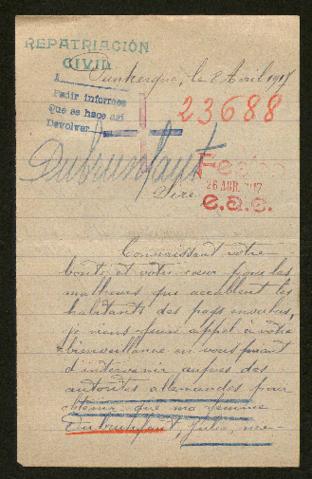 REPATRIACIÓN
CIVIL
A
Pedir informes
Que se hace así
Devolver
Dunkerque, le 8 Avril 1917
23688
Dubrunfaut
26 ABR. 1917
c.a.c.
Sire,
Connaissant votre
bonté et votre cœur pour les
malheurs que accablent les
habitants des pays envahis,
je viens faire appel à votre
bienveillance en vous priant
d'intervenir auprès des
autorités allemandes pour
obtenir que ma femme
Dubrunfaut, Julia, née